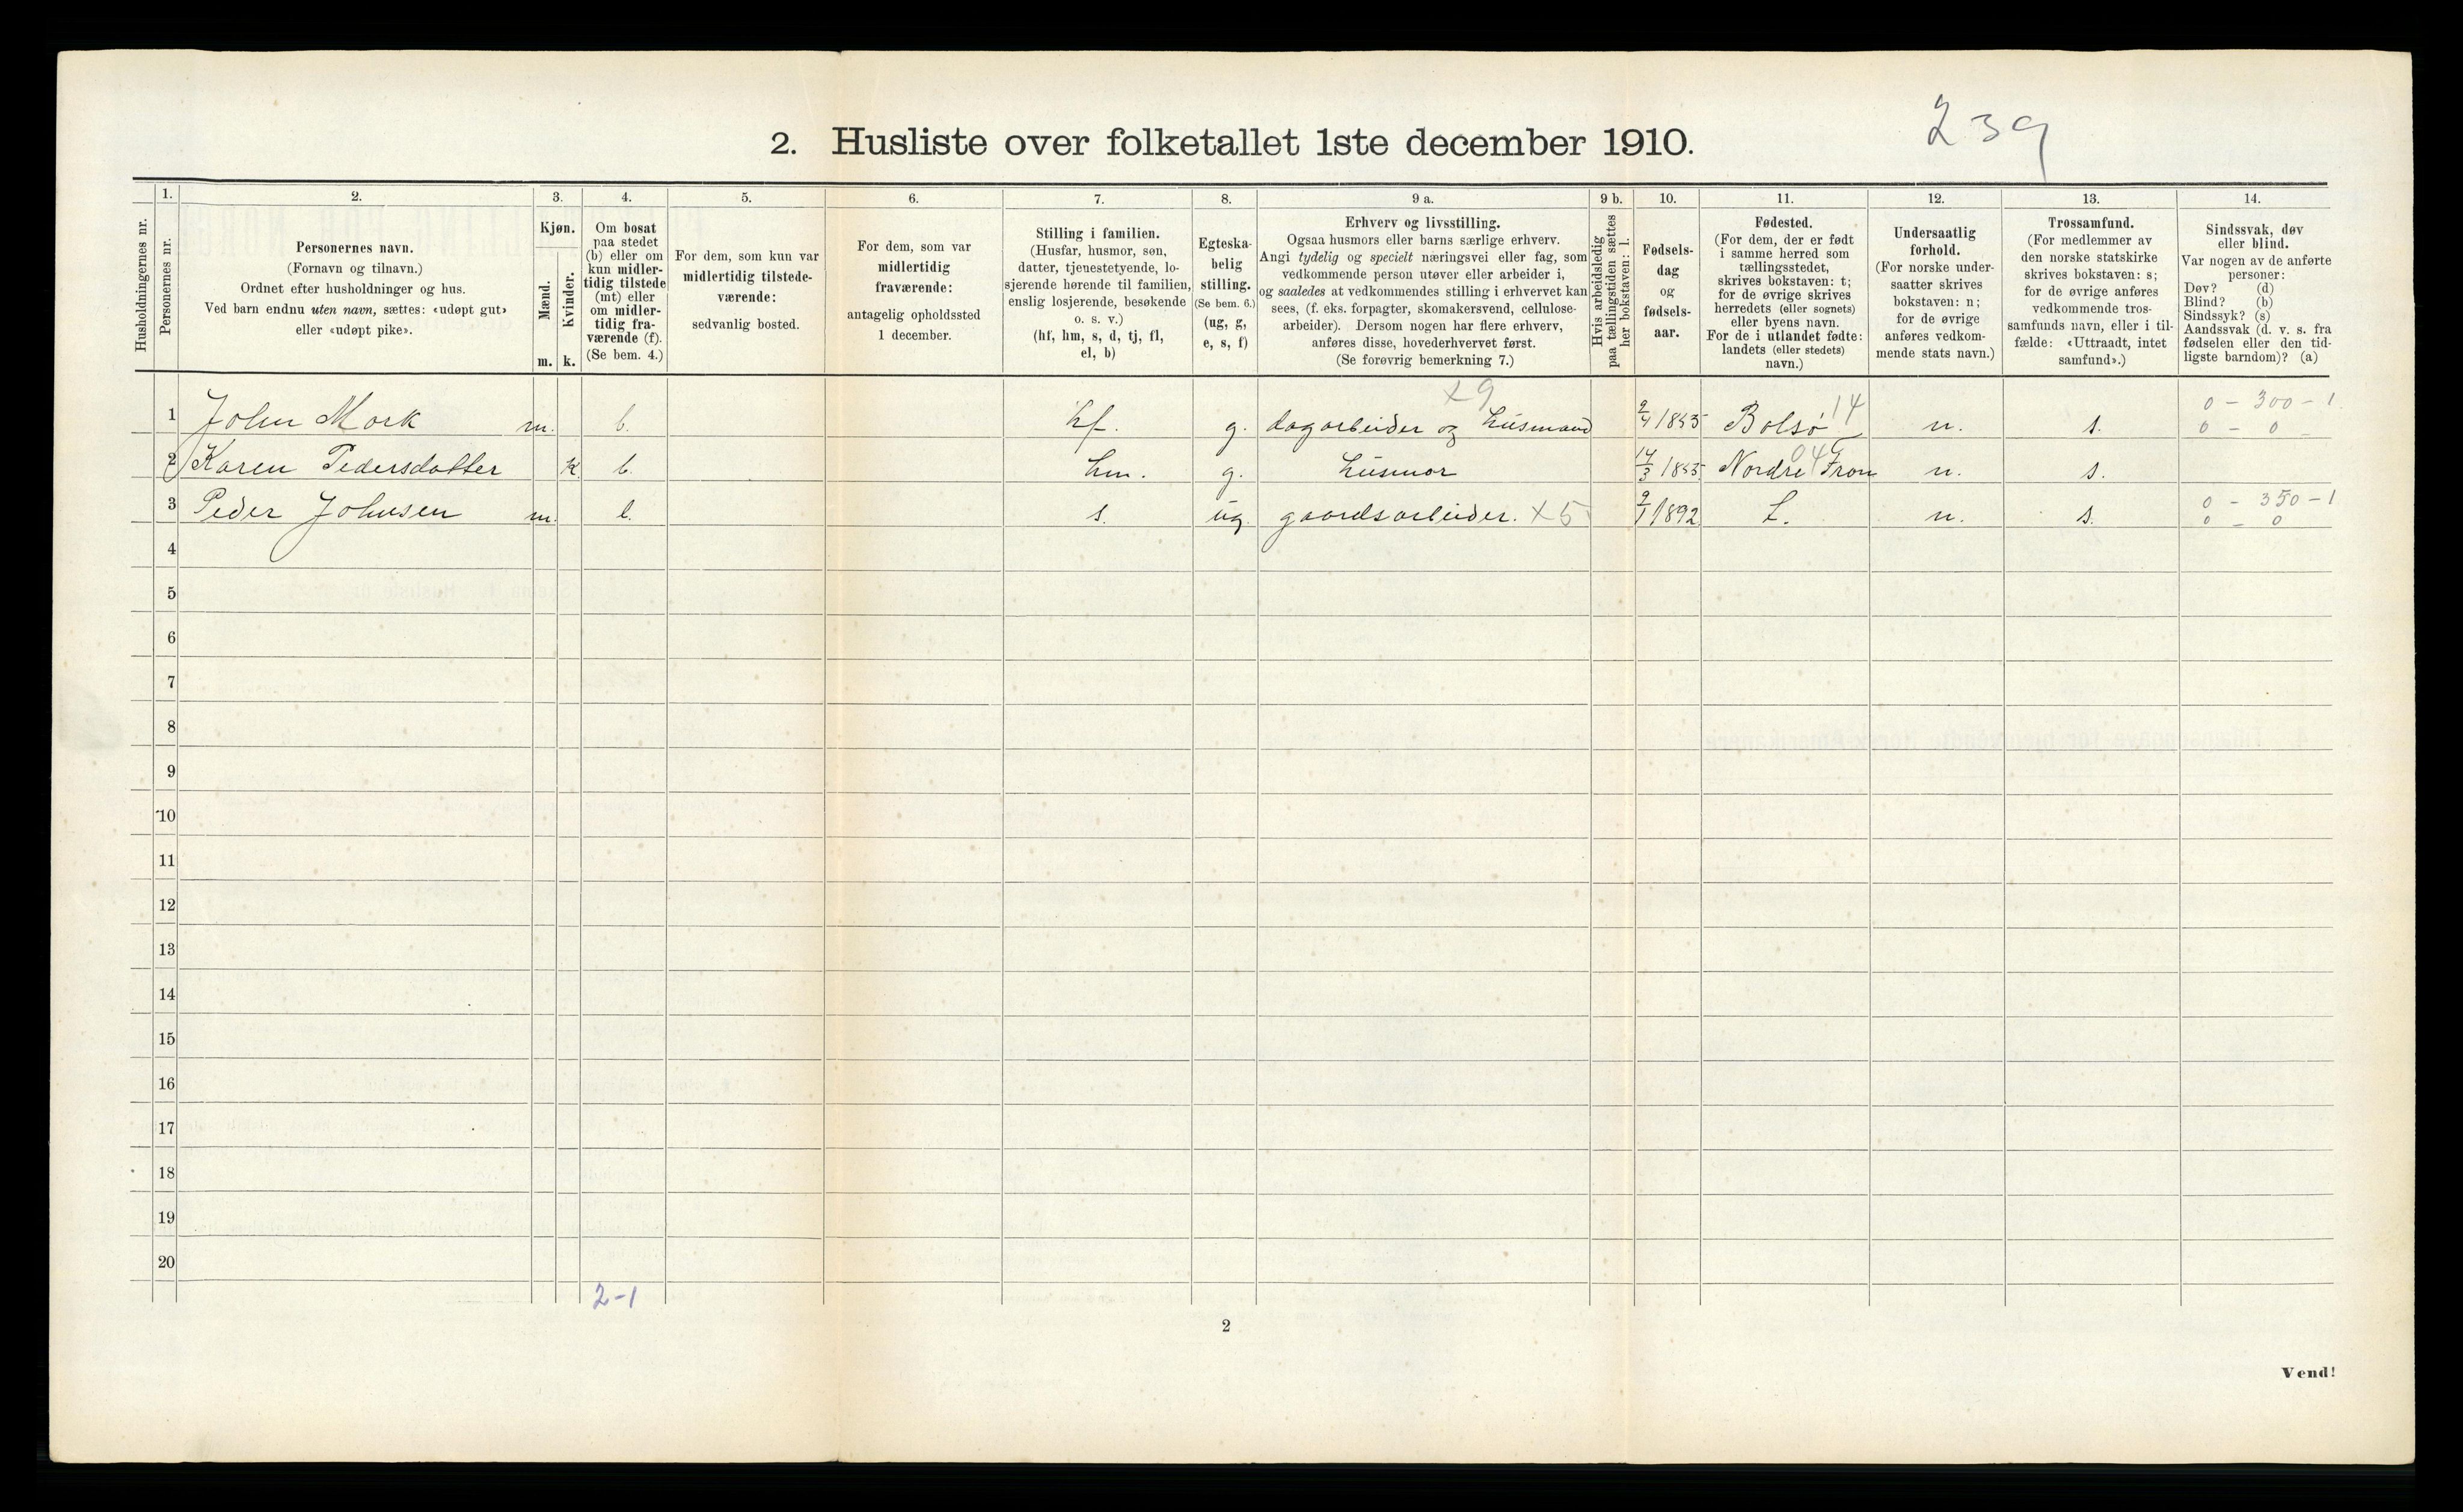 239
2. Husliste over folketallet 1ste december 1910.
Husholdningernes nr.
1.
Personernes nr.
2.
Personernes navn.
(Fornavn og tilnavn.)
Ordnet efter husholdninger og hus.
Ved barn endnu uten navn, sættes: «udøpt gut»
eller «udøpt pike».
3.
Kjøn.
Mænd.
m.
Kvinder.
k.
4.
Om bosat
paa stedet
(b) eller om
kun midler-
tidig tilstede
(mt) eller
om midler-
tidig fra-
værende (f).
(Se bem. 4.)
5.
For dem, som kun var
midlertidig tilstede-
værende:
sedvanlig bosted.
6.
For dem, som var
midlertidig
fraværende:
antagelig opholdssted
1 december.
7.
Stilling i familien.
(Husfar, husmor, søn,
datter, tjenestetyende, lo-
sjerende hørende til familien,
enslig losjerende, besøkende
o. s. v.)
(hf, hm, s, d, tj, fl,
el, b)
8.
Egteska-
belig
stilling.
(Se bem. 6.)
(ug, g,
e, s, f)
9 a.
Erhverv og livsstilling.
Ogsaa husmors eller barns særlige erhverv.
Angi tydelig og specielt næringsvei eller fag, som
vedkommende person utøver eller arbeider i,
og saaledes at vedkommendes stilling i erhvervet kan
sees, (f. eks. forpagter, skomakersvend, cellulose-
arbeider). Dersom nogen har flere erhverv,
anføres disse, hovederhvervet først.
(Se forøvrig bemerkning 7.)
9 b.
Hvis arbeidsledig
paa tællingstiden sættes
her bokstaven: l.
10.
Fødsels-
dag
og
fødsels-
aar.
11.
Fødested.
(For dem, der er født
i samme herred som
tællingsstedet,
skrives bokstaven: t;
for de øvrige skrives
herredets (eller sognets)
eller byens navn.
For de i utlandet fødte:
landets (eller stedets)
navn.)
12.
Undersaatlig
forhold.
(For norske under-
saatter skrives
bokstaven: n;
for de øvrige
anføres vedkom-
mende stats navn.)
13.
Trossamfund.
(For medlemmer av
den norske statskirke
skrives bokstaven: s;
for de øvrige anføres
vedkommende tros-
samfunds navn, eller i til-
fælde: «Uttraadt, intet
samfund».)
14.
Sindssvak, døv
eller blind.
Var nogen av de anførte
personer:
Døv? (d)
Blind? (b)
Sindssyk? (s)
Aandssvak (d. v. s. fra
fødselen eller den tid-
ligste barndom)? (a)
x9 14 0 - 300 - 1
1 John Mork m. b. hf. g. dagarbeider og husmand 2/4 1853 Bolsø n. s. 0 - 0 -
04
2 Karen Pedersdatter k b. hm. g. husmor 14/3 1855 Nordre Fron n. s.
0 - 350 - 1
3 Peder Johnsen m. b. s. ug. gaardsarbeider. x5 9/1 1892 t. n. s. 0 - 0
4
5
6
7
8
9
10
11
12
13
14
15
16
17
18
19
20
2-1
2
Vend!